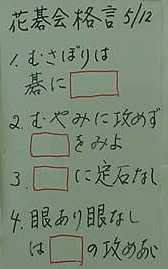 花碁会格言 5/12
1. むさぼりは
碁に
2. むやみに攻めず
をみよ
3. に定石なし
4. 眼あり眼なし
はの攻めあい